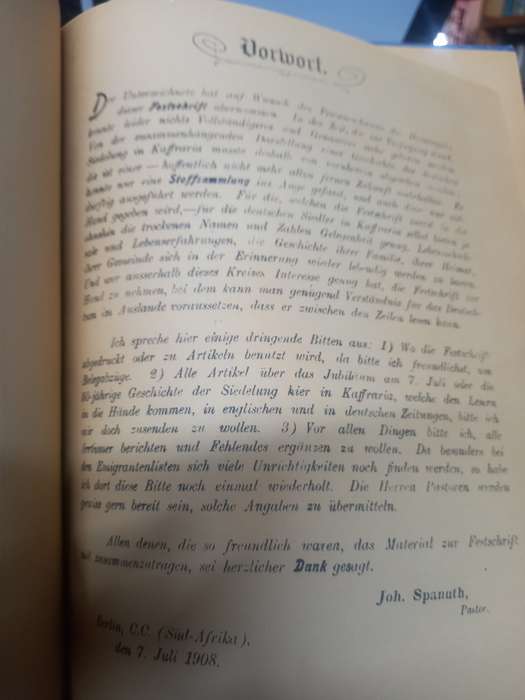 Vorwort.
Der Unterzeichnete hat auf Wunsch des
dieser Festschrift übernommen. In der Zeit, die zur Verfügung stand,
konnte leider nichts Vollständigeres und Genaueres
Von der zusammenhängenden Darstellung einer Geschichte der deutschen
Siedelung in Kaffraria musste deshalb von vornherein abgesehen werden,
die ist einer — hoffentlich nicht mehr allzu fernen Zukunft
konnte nur eine Stoffsammlung ins Auge gefasst, und auch diese nur
dürftig ausgeführt werden. Für die, welchen die Festschrift zuerst in die
Hand gegeben wird,—für die deutschen Siedler in Kaffraria selbst bieten ja
die trockenen Namen und Zahlen Gelegenheit genug,
und Lebenserfahrungen, die Geschichte ihrer Familie, ihrer Heimat,
ihrer Gemeinde sich in der Erinnerung wieder lebendig werden zu lassen.
Und wer ausserhalb dieses Kreises Interesse genug hat, die Festschrift zur
Hand zu nehmen, bei dem kann man genügend Verständnis für das
im Auslande voraussetzen, dass er zwischen den Zeilen lesen kann.
Ich spreche hier einige dringende Bitten aus: 1) Wo die Festschrift
abgedruckt oder zu Artikeln benutzt wird, da bitte ich freundlichst, um
Belegabzüge. 2) Alle Artikel über das Jubiläum am 7. Juli oder die
50-jährige Geschichte der Siedelung hier in Kaffraria, welche den Lesern
in die Hände kommen, in englischen und in deutschen Zeitungen, bitte ich
mir doch zusenden zu wollen. 3) Vor allen Dingen bitte ich, alle
berichten und Fehlendes ergänzen zu wollen. Da besonders bei
den Emigrantenlisten sich viele Unrichtigkeiten noch finden werden, so habe
ich dort diese Bitte noch einmal wiederholt. Die Herren Pastoren werden
gewiss gern bereit sein, solche Angaben zu übermitteln.
Allen denen, die so freundlich waren, das Material zur Festschrift
mit zusammenzutragen, sei herzlicher Dank gesagt.
Joh. Spanuth,
Pastor.
Berlin, C.C. (Süd-Afrika),
den 7. Juli 1908.